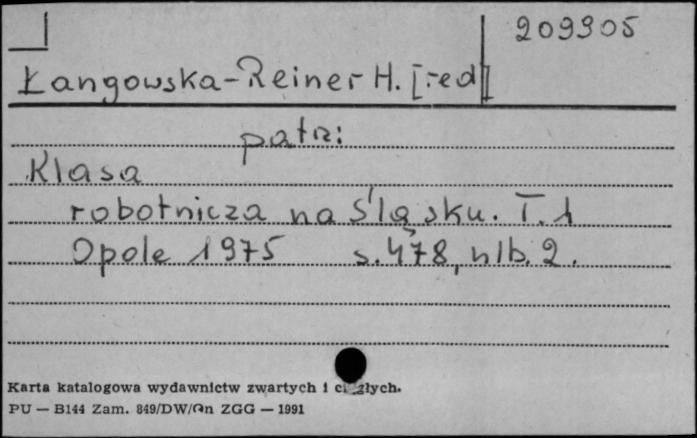 209905
Łangowska-Reiner H. [red]
patrz:
Klasa
robotnicza na Śląsku. T. 1
Opole 1975 s. 478, nlb. 2.
Karta katalogowa wydawnictw zwartych i
PU — B144 Zam. 849/DW/On ZGG — 1991